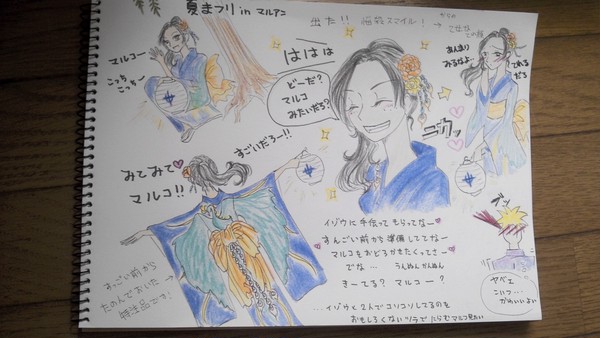 夏まつり in マルアン
出た!!
スマイル!
からの
マルコー
こっち
こっちー
ははは
どーだ?
マルコ
みたいだろ?
あんまり
みるなよ…
てれる
だろ
ニカッ
すごいだろー!!
みてみて
マルコ!!
すごい前から
たのんでおいた
特注品です!
イゾウに手伝ってもらってなー
すんごい前から準備しててなー
マルコをおどろかせたくってさー
でな… うんぬんかんぬん
きーてる? マルコー?
…イゾウと2人でコソコソしてるのを
おもしろくないツラでにらむマルコ見たい
ブッ
ヤベェ
こいつ…
かわいいよい